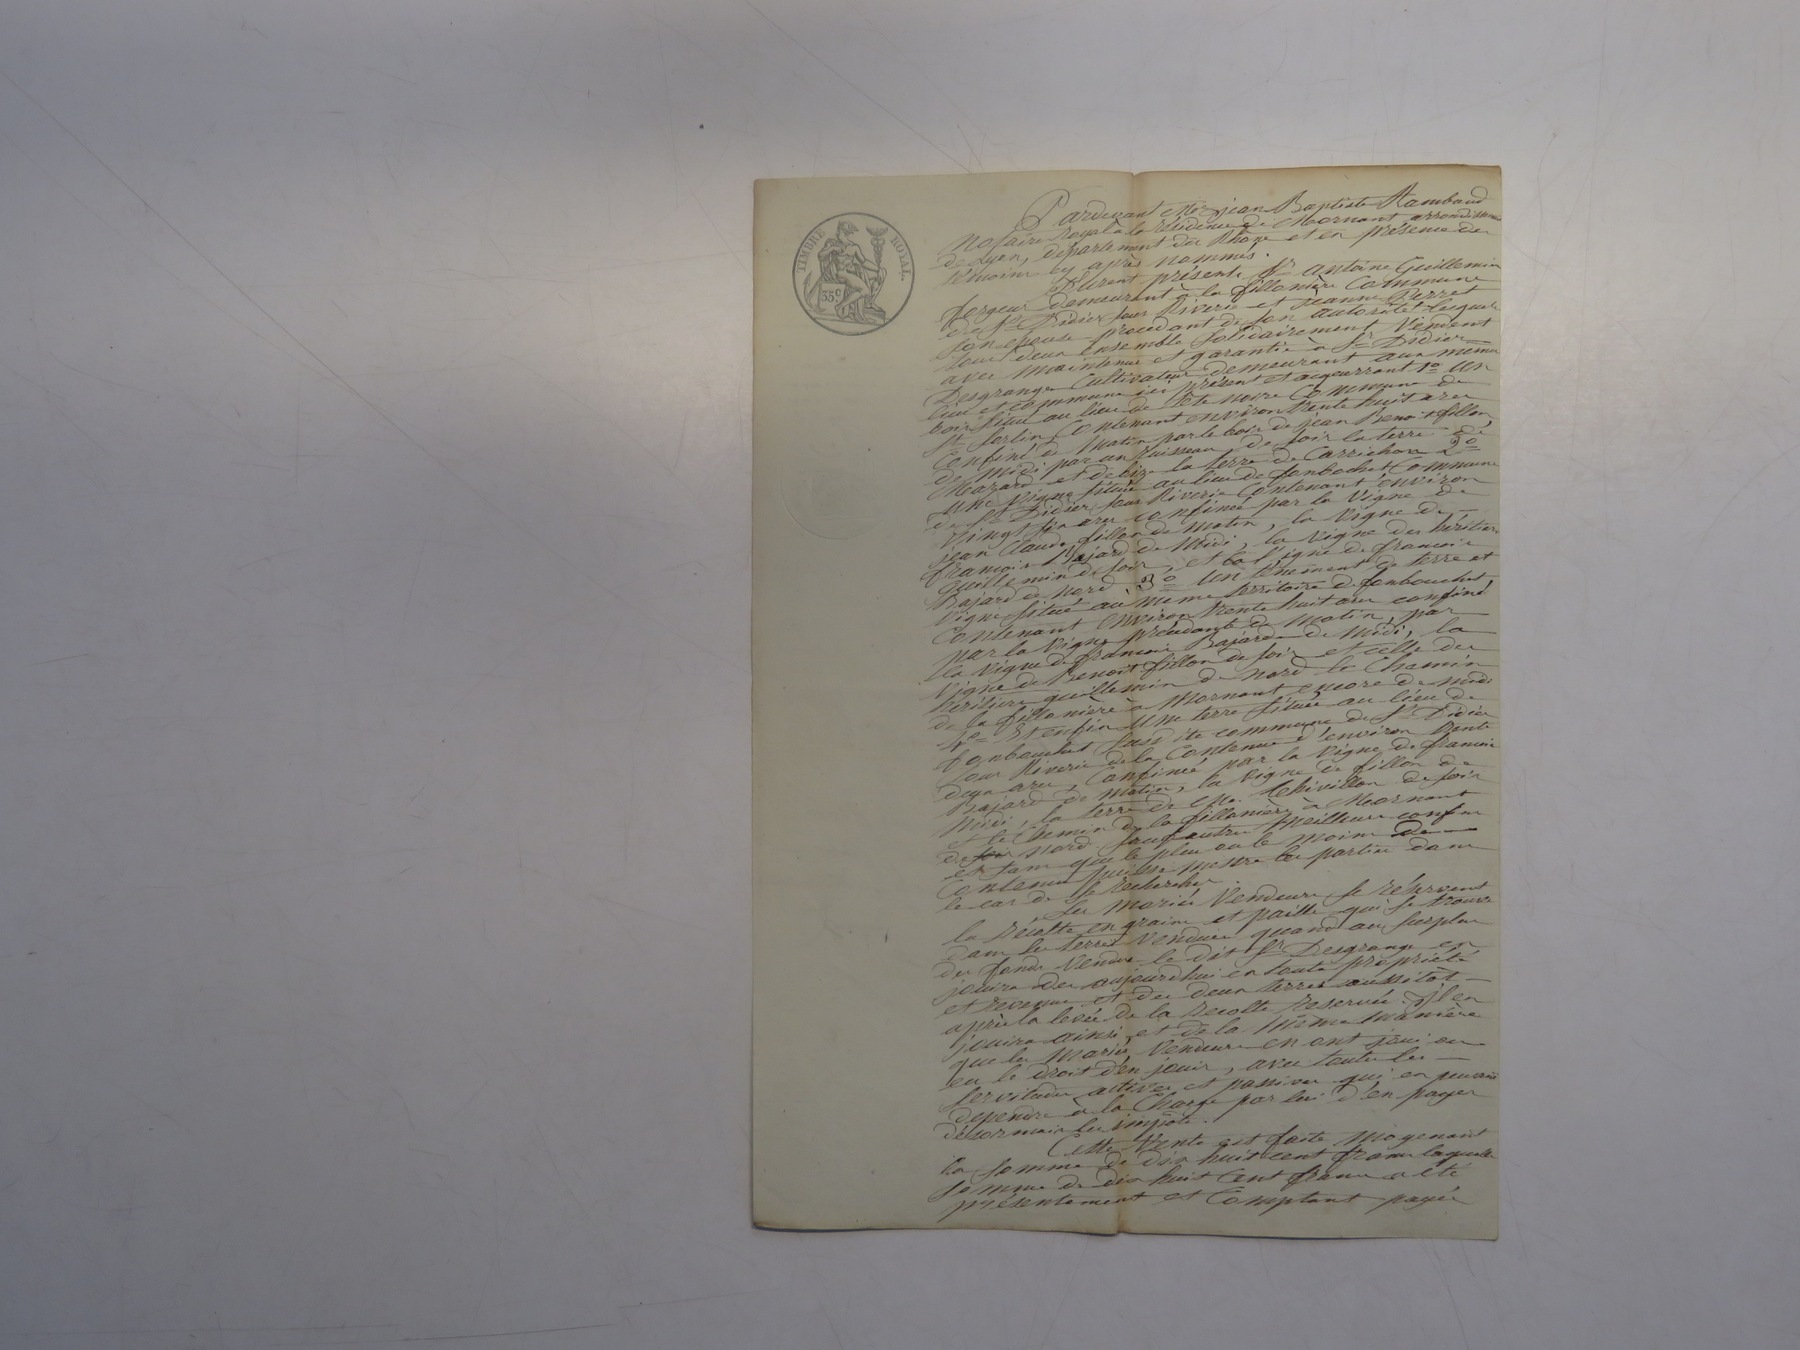 TIMBRE ROYAL
35 c
Pardevant Me jean Baptiste Rambaud
Notaire Royal à la résidence de Mornant arrondissement
de Lyon, département du Rhône et en présence des
témoins cy après nommés.
Furent présents Sr antoine Guillemin
forgeur demeurant à la fillonière Commune
de St Didier sous Riverie et jeanne Perret
son épouse procédant de son autorité lesquels
tous deux ensemble solidairement Vendent
avec maintenue et garantie à Sr Didier
Desgrange Cultivateur demeurant aux mêmes
lieu et commune ici présent et acquerrant 1o Un
bois situé au lieu de tête noire Commune de
St Sorlin, Contenant environ trente huit ares
Confiné de Matin par le bois de jean Benoit fillon,
de Midi par un Ruisseau, de soir la terre de
Mazard et de bize la terre de Carrichon 2o
une Vigne située au lieu de fonbochet Commune
de St Didier sous Riverie Contenant environ
Vingt six ares confinée par la Vigne de
jean Claude fillon de Matin, la Vigne de
françois Bajard de Midi, la Vigne des héritiers
Guillemin de soir, et la Vigne de françois
Bajard de nord 3o Un tènement de terre et
Vigne situé au même territoire de fonbouchet,
Contenant environ trente huit ares confiné
par la Vigne précédente de Matin, par
la Vigne de françois Bajard de Midi, la
Vigne de Benoit fillon de soir et celle des
héritiers guillemin de Nord le Chemin
de la fillonière à Mornant encore de midi
4o Et enfin Une terre située au lieu de
fonbouchet susdite commune de St Didier
sous Riverie de la Contenue d'environ trente
deux ares, Confinée par la Vigne de françois
Bajard de Matin, la Vigne de fillon de
Midi, la terre de Me Chivillon de soir
et le Chemin de la fillonière à Mornant
de soir nord sauf autres Meilleurs confins
et sans que le plus ou le moins de
Contenue puisse mettre les parties dans
le cas de se rechercher.
Les mariés Vendeurs se réservent
la récolte en grains et paille qui se trouve
dans les terres Vendues quand au surplus
des fonds Vendus le dit Sr Desgrange en
jouira des aujourdhui en toute propriété
et revenus et des deux terres aussitôt
après la levée de la récolte reservée. Il en
jouira ainsi et de la même manière
que les Mariés Vendeurs en ont joui ou
eu le droit d'en jouir, avec toutes les
servitudes actives et passives qui en peuvent
dependre à la Charge par lui d'en payer
désormais les impôts.
Cette Vente est faite Moyenant
la somme de dix huit cent francs laquelle
somme de dix huit Cent francs a été
présentement et Comptant payée